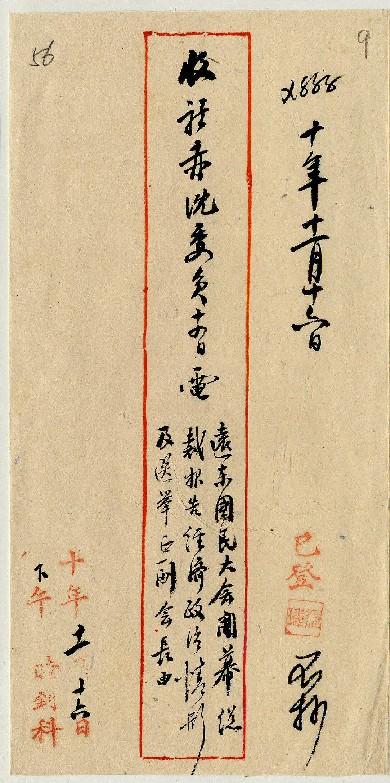 9
56
X888
十年十二月十六日
已登
不抄
收 赤 委員 日電
遠東國民大會開幕總
裁報告經濟政治情形
及選舉正副會長由
十年 十六日
下午 時到科